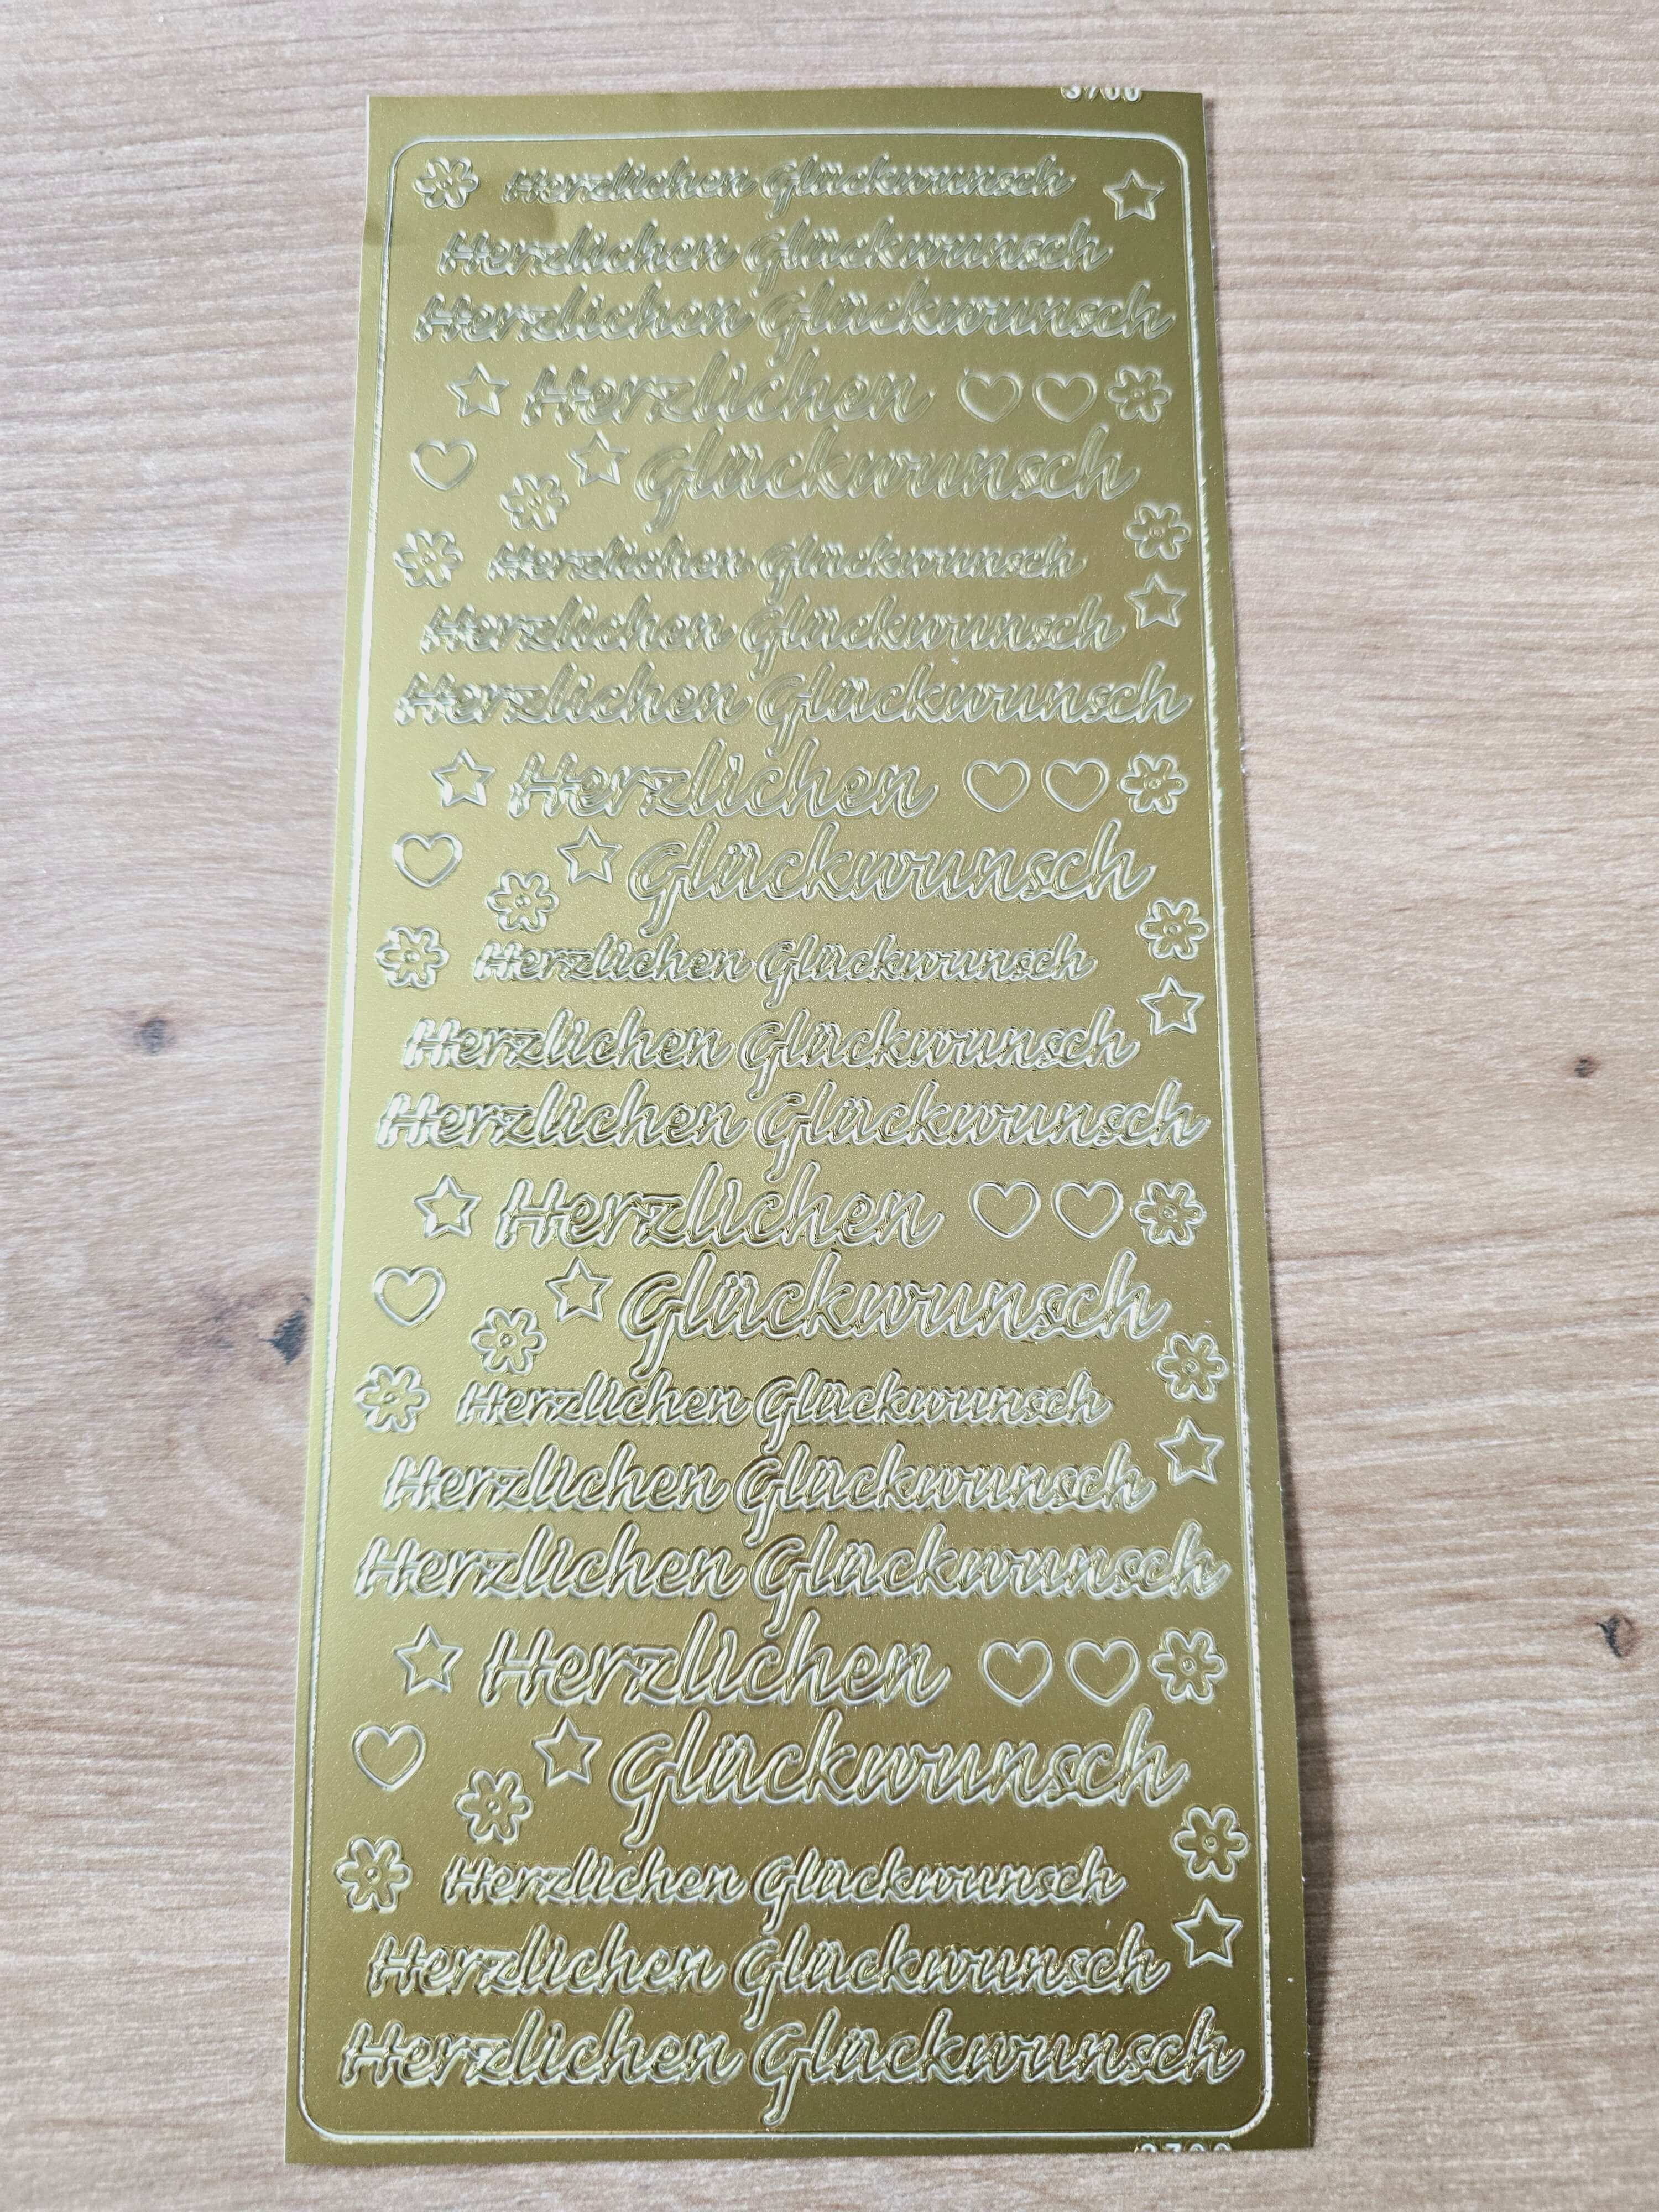 3700
Herzlichen Glückwunsch
Herzlichen Glückwunsch
Herzlichen Glückwunsch
Herzlichen
Glückwunsch
Herzlichen Glückwunsch
Herzlichen Glückwunsch
Herzlichen Glückwunsch
Herzlichen
Glückwunsch
Herzlichen Glückwunsch
Herzlichen Glückwunsch
Herzlichen Glückwunsch
Herzlichen
Glückwunsch
Herzlichen Glückwunsch
Herzlichen Glückwunsch
Herzlichen Glückwunsch
Herzlichen
Glückwunsch
Herzlichen Glückwunsch
Herzlichen Glückwunsch
Herzlichen Glückwunsch